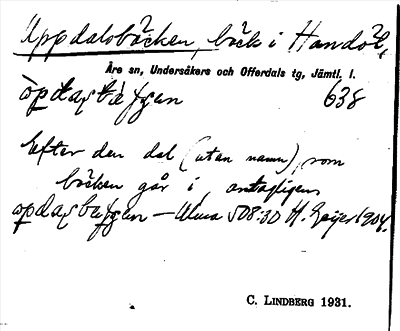 Uppdalsbäcken, bäck i Handöl,
Åre sn, Undersåkers och Offerdals tg, Jämtl. l.
638
Efter den dal (utan namn), som
bäcken går i, antagligen
— Ulma 508:30 H. Geijer 1908.
C. LINDBERG 1931.